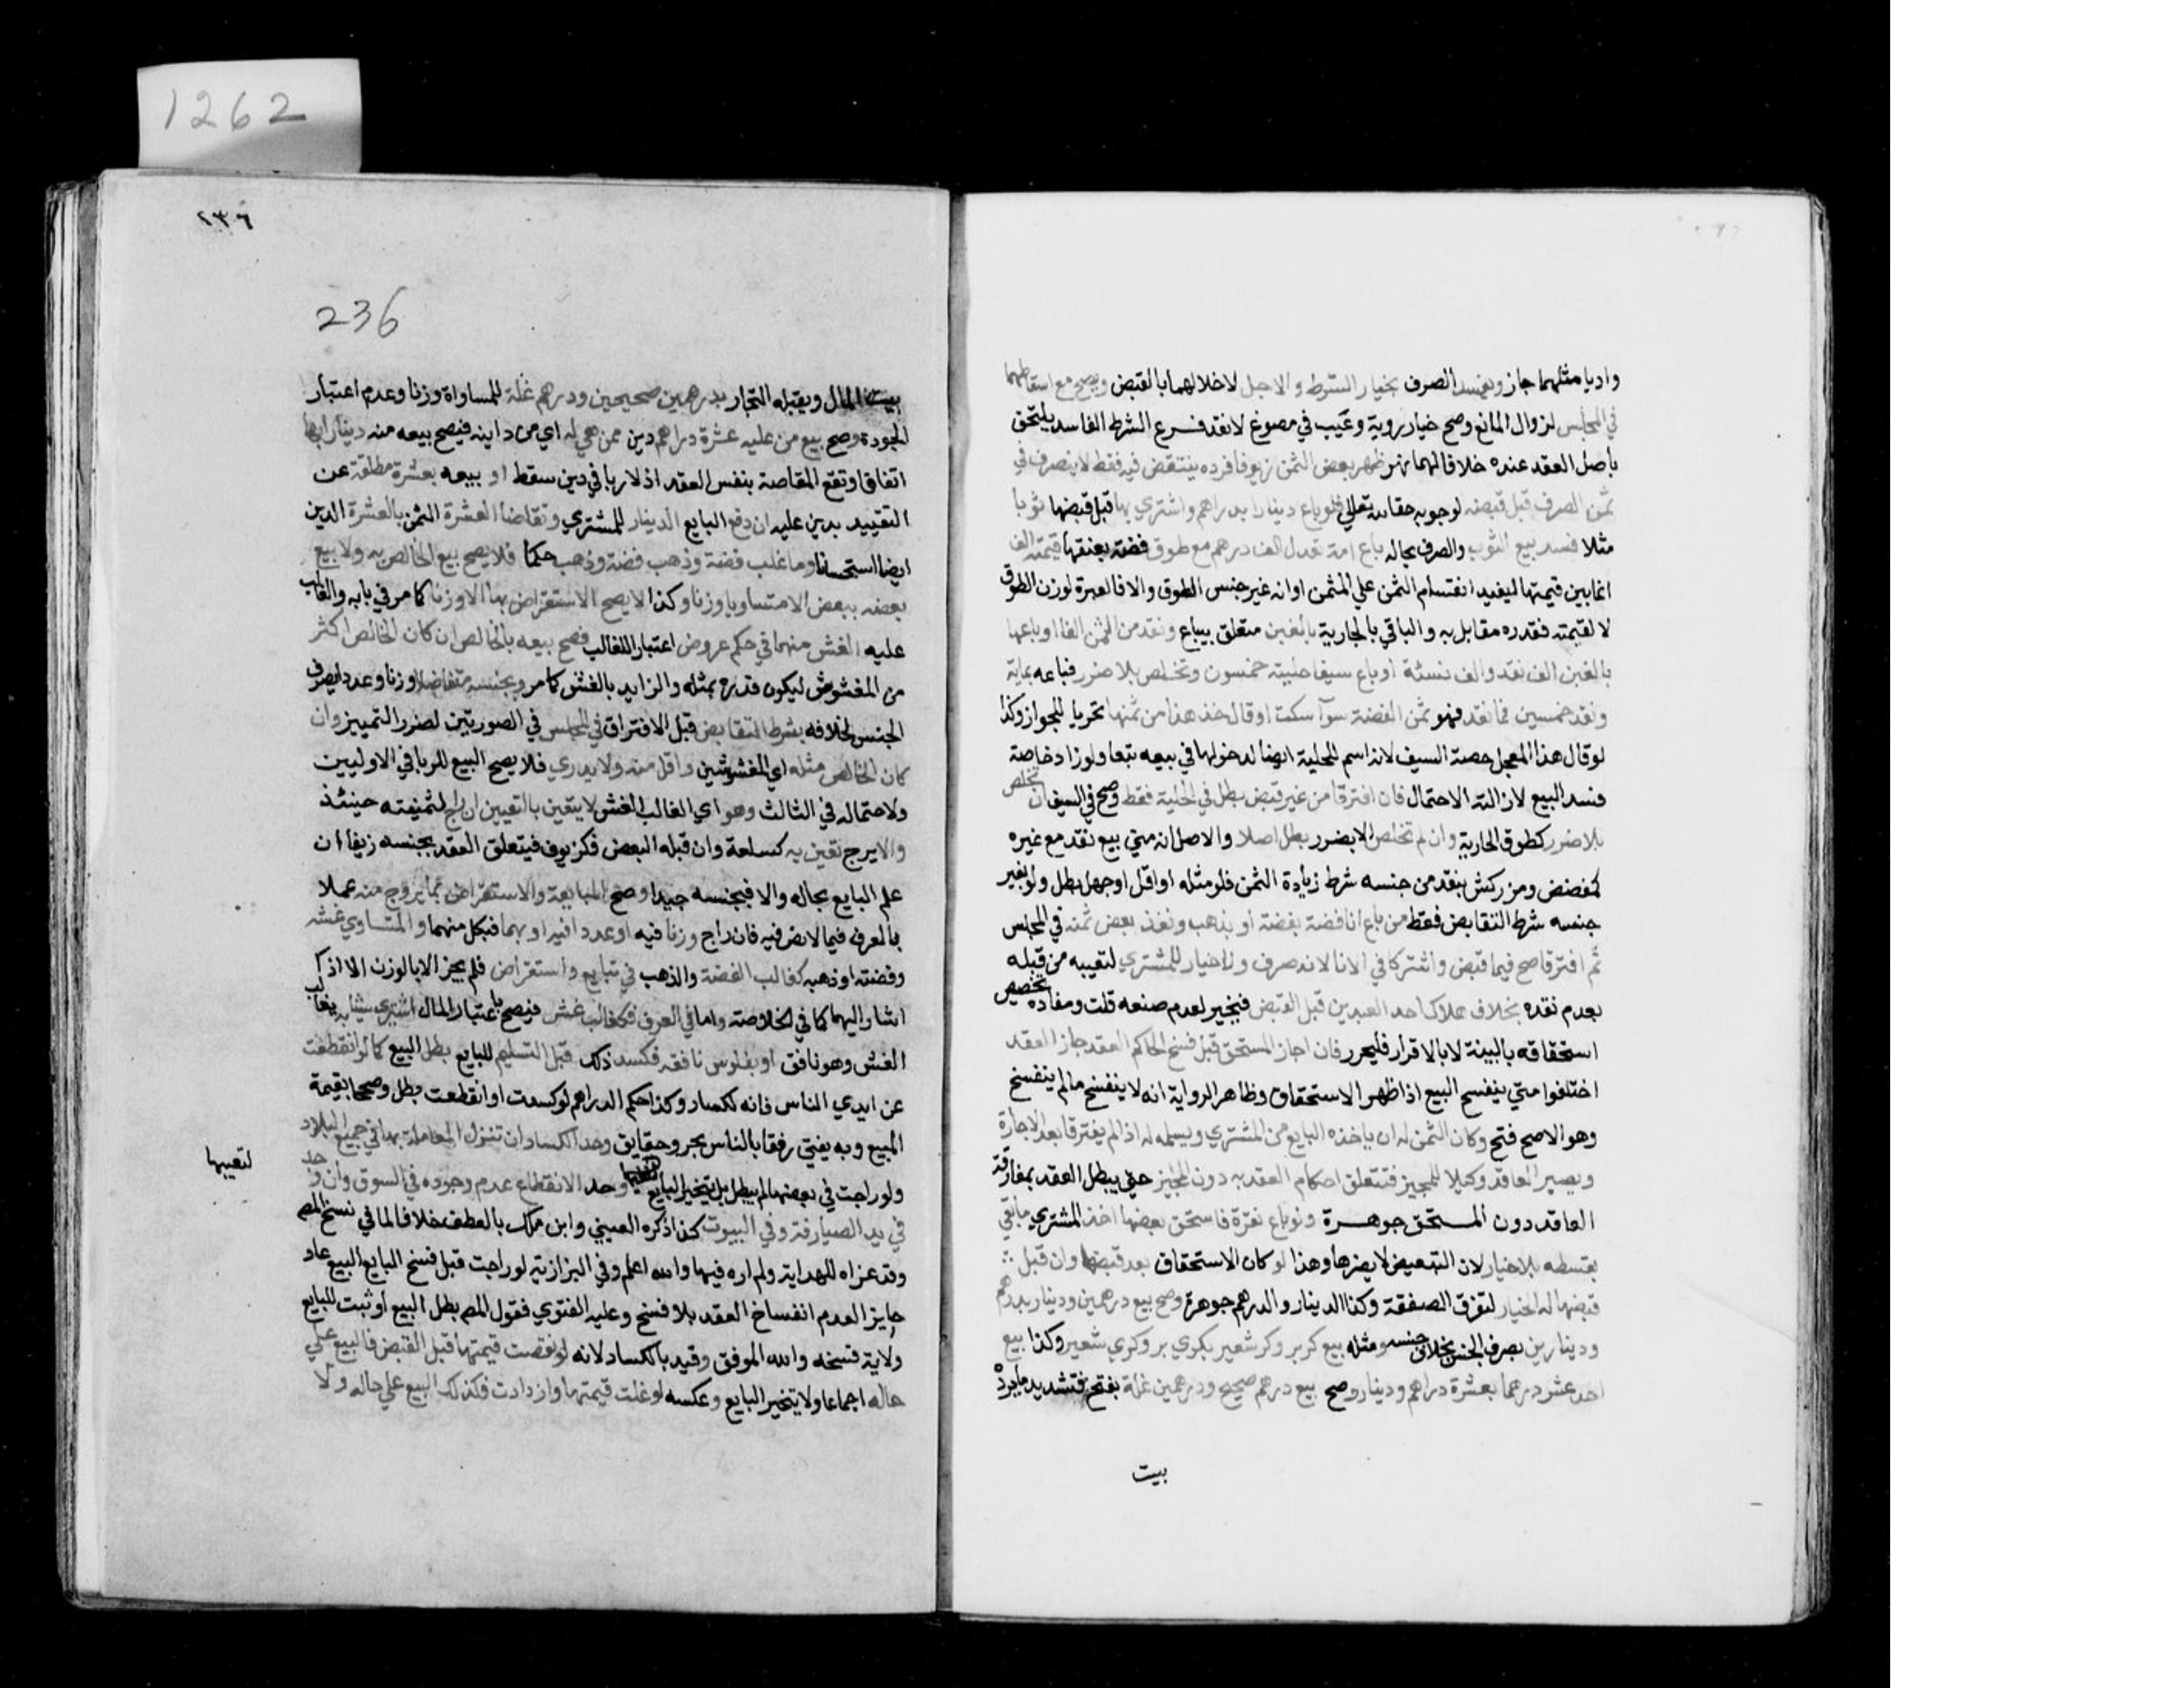 واديا مثلهما جاز ويفسد الصرف بخيار الشرط والاجل لاخلالهما بالقبض ويصح مع اسقاطهما
في المجلس لزوال المانع وصح خيار روية وعيب في مصوغ لا نقد فرع الشرط الفاسد يلتحق
باصل العقد عنده خلافا لهما نهر ظهر بعض الثمن زيوفا فرده ينتقض فيه فقط لا يتصرف في
ثمن الصرف قبل قبضه لوجوبه حقا لله تعالي فلو باع دينارا بدراهم واشتري بها قبل قبضها ثوبا
مثلا فسد بيع الثوب والصرف بحاله باع امة تعدل الف درهم مع طوق فضة بعنقها قيمته الف
انما بين قيمتها ليفيد انقسام الثمن علي المثمن او انه غير جنس الطوق والا فالعبرة لوزن الطوق
لا لقيمته فقدره مقابل به والباقي بالجارية بالفين متعلق بباع ونقد من الثمن الفا او باعها
بالفين الف نقد والف نسئة او باع سيفا حليته خمسون وتخلص بلا ضرر فباعه بماية
ونقد خمسين فما نقد فهو ثمن الفضة سوآ سكت او قال خذ هذا من ثمنها تحريا للجواز وكذا
لو قال هذا المعجل حصة السيف لانه اسم للحلية ايضا لدخولها في بيعه تبعا ولو زاد خاصة
فسد البيع لازالته الاحتمال فان افترقا من غير قبض بطل في الحلية فقط وصح في السيف ان تخلص
بلا ضرر كطوق الجارية وان لم تخلص الا بضرر بطل اصلا والاصل انه متي بيع نقد مع غيره
كمفضض ومزركش بنقد من جنسه شرط زيادة الثمن فلو مثله او اقل او جهل بطل ولو بغير
جنسه شرط التقابض فقط من باع انا فضة بفضة او بذهب ونقد بعض ثمنه في المجلس
ثم افترقا صح فيما قبض واشتركا في الانا لانه صرف ولا خيار للمشتري لتعيبه من قبله
بعدم نقده بخلاف هلاك احد العبدين قبل القبض فيخير لعدم صنعه قلت ومفاده تخصيص
استحقاقه بالبينة لا بالاقرار فليحرر فان اجاز المستحق قبل فسخ الحاكم العقد جاز العقد
اختلفوا متي ينفسخ البيع اذا ظهر الاستحقاق وظاهر الرواية انه لا ينفسخ مالم ينفسخ
وهو الاصح فتح وكان الثمن له ان ياخذه البايع من المشتري ويسلمه له اذا لم يفترقا بعد الاجازة
ويصير العاقد وكيلا للمجيز فتتعلق احكام العقد به دون المجيز حتي يبطل العقد بمفارقة
العاقد دون المستحق جوهرة ولو باع نقرة فاستحق بعضها اخذ المشتري ما بقي
بقسطه بلا خيار لان التبعيض لا يضرها وهذا لو كان الاستحقاق بعد قبضها وان قبل
قبضها له الخيار لتفرق الصفقة وكذا الدينار والدرهم جوهرة وصح بيع درهمين ودينار بدرهم
ودينارين بصرف الجنس بخلاف جنسه ومثله بيع كر بر وكر شعير بكري بر وكري شعير وكذا بيع
احد عشر درهما بعشرة دراهم ودينار وصح بيع درهم صحيح ودرهمين غلة بفتح فتشديد ما يرده
بيت
1262
٢٣٦
236
بيت المال ويقبله التجار بدرهمين صحيحين ودرهم غلة للمساواة وزنا وعدم اعتبار
الجودة وصح بيع من عليه عشرة دراهم دين ممن هي له اي من داينه فيصح بيعه منه دينارا بها
اتفاقا وتقع المقاصة بنفس العقد اذ لا ربا في دين سقط او بيعه بعشرة مطلقة عن
التقييد بدين عليه ان دفع البايع الدينار للمشتري وتقاضا العشرة الثمن بالعشرة الدين
ايضا استحسانا وما غلب فضة وذهب فضة وذهب حكما فلا يصح بيع الخالص به ولا بيع
بعضه ببعض الا متساويا وزنا وكذا لا يصح الاستقراض بها الا وزنا كما مر في بابه والغالب
عليه الغش منهما في حكم عروض اعتبارا للغالب فصح بيعه بالخالص ان كان الخالص اكثر
من المغشوش ليكون قدره بمثله والزايد بالغش كما مر وبجنسه متفاضلا وزنا وعددا بصرف
الجنس لخلافه بشرط التقابض قبل الافتراق في المجلس في الصورتين لضرر التمييز وان
كان الخالص مثله اي المغشوشين واقل منه ولا يدري فلا يصح البيع للربا في الاوليين
ولاحتماله في الثالث وهو اي الغالب الغش لا يتعين بالتعيين ان راج لثمنيته حينئذ
والا يرج تعين به كسلعة وان قبله البعض فكزيوف فيتعلق العقد بجنسه زيفا ان
علم البايع بحاله والا فبجنسه جيدا وصح المبايعة والاستقراض بما يروج منه عملا
بالعرف فيما لا نص فيه فان راج وزنا فيه او عددا فيه او بهما فبكل منهما والمتساوي غشه
وفضته او ذهبه كغالب الفضة والذهب في تبايع واستقراض فلم يجز الا بالوزن الا اذا
اشار اليهما كما في الخلاصة واما في الصرف فكغالب غش فيصح باعتبار المال اشتري شيئا به بغالب
الغش وهو نافق او بفلوس نافقة فكسد ذلك قبل التسليم للبايع بطل البيع كما لو انقطعت
عن ايدي الناس فانه ككساد وكذا حكم الدراهم لو كسدت او انقطعت بطل وصححا بقيمة
المبيع وبه يفتي رفقا بالناس بحر وحقايق وحد الكساد ان تترك المعاملة بها في جميع البلاد
ولو راجت في بعضها لم يبطل بل يتخير البايع لتعيبها وحد الانقطاع عدم وجوده في السوق وان وجد
لتعيبها
في يد الصيارفة وفي البيوت كذا ذكره العيني وابن ملك بالعطف خلافا لما في نسخ المص
وقد عزاه للهداية ولم اره فيها والله اعلم وفي البزازية لو راجت قبل فسخ البايع البيع عاد
جايزا لعدم انفساخ العقد بلا فسخ وعليه الفتوي فقول المص بطل البيع او ثبت للبايع
ولاية فسخه والله الموفق وقيد بالكساد لانه لو نقصت قيمتها قبل القبض فالبيع علي
حاله اجماعا ولا يتخير البايع وعكسه لو غلت قيمتها وازدادت فكذلك البيع علي حاله ولا